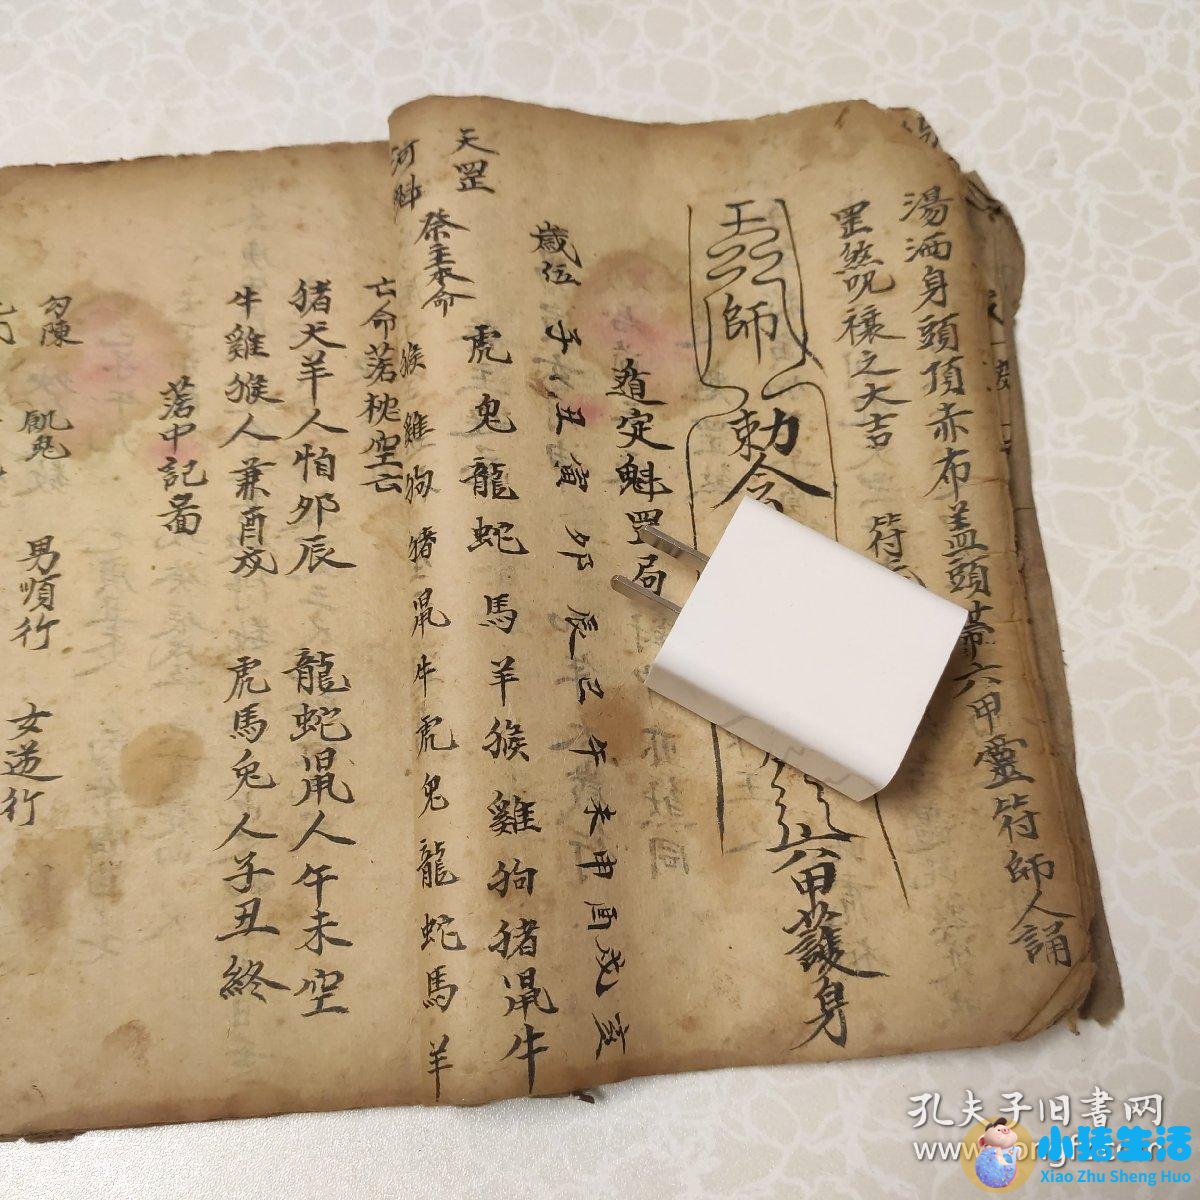 湯洒身頭頂赤布盖頭㡌六甲靈符師人誦
罡煞咒禳之大吉 符
師
勅令
六甲護身
遁定魁罡局
亦
同
歲位 子 丑 寅 卯 辰 巳 午 未 申 酉 戌 亥
天罡 虎兔龍蛇馬羊猴雞狗猪鼠牛
河魁 祭主本命 猴雞狗猪鼠牛虎兔龍蛇馬羊
亡命菪枕空云
猪犬羊人怕卯辰 龍蛇鼠人午未空
牛雞猴人兼酉戌 虎馬兔人子丑終
菪中記畜
勾陳 飢鬼 男順行 女逆行
孔夫子旧書网
小猪生活
Xiao Zhu Sheng Huo